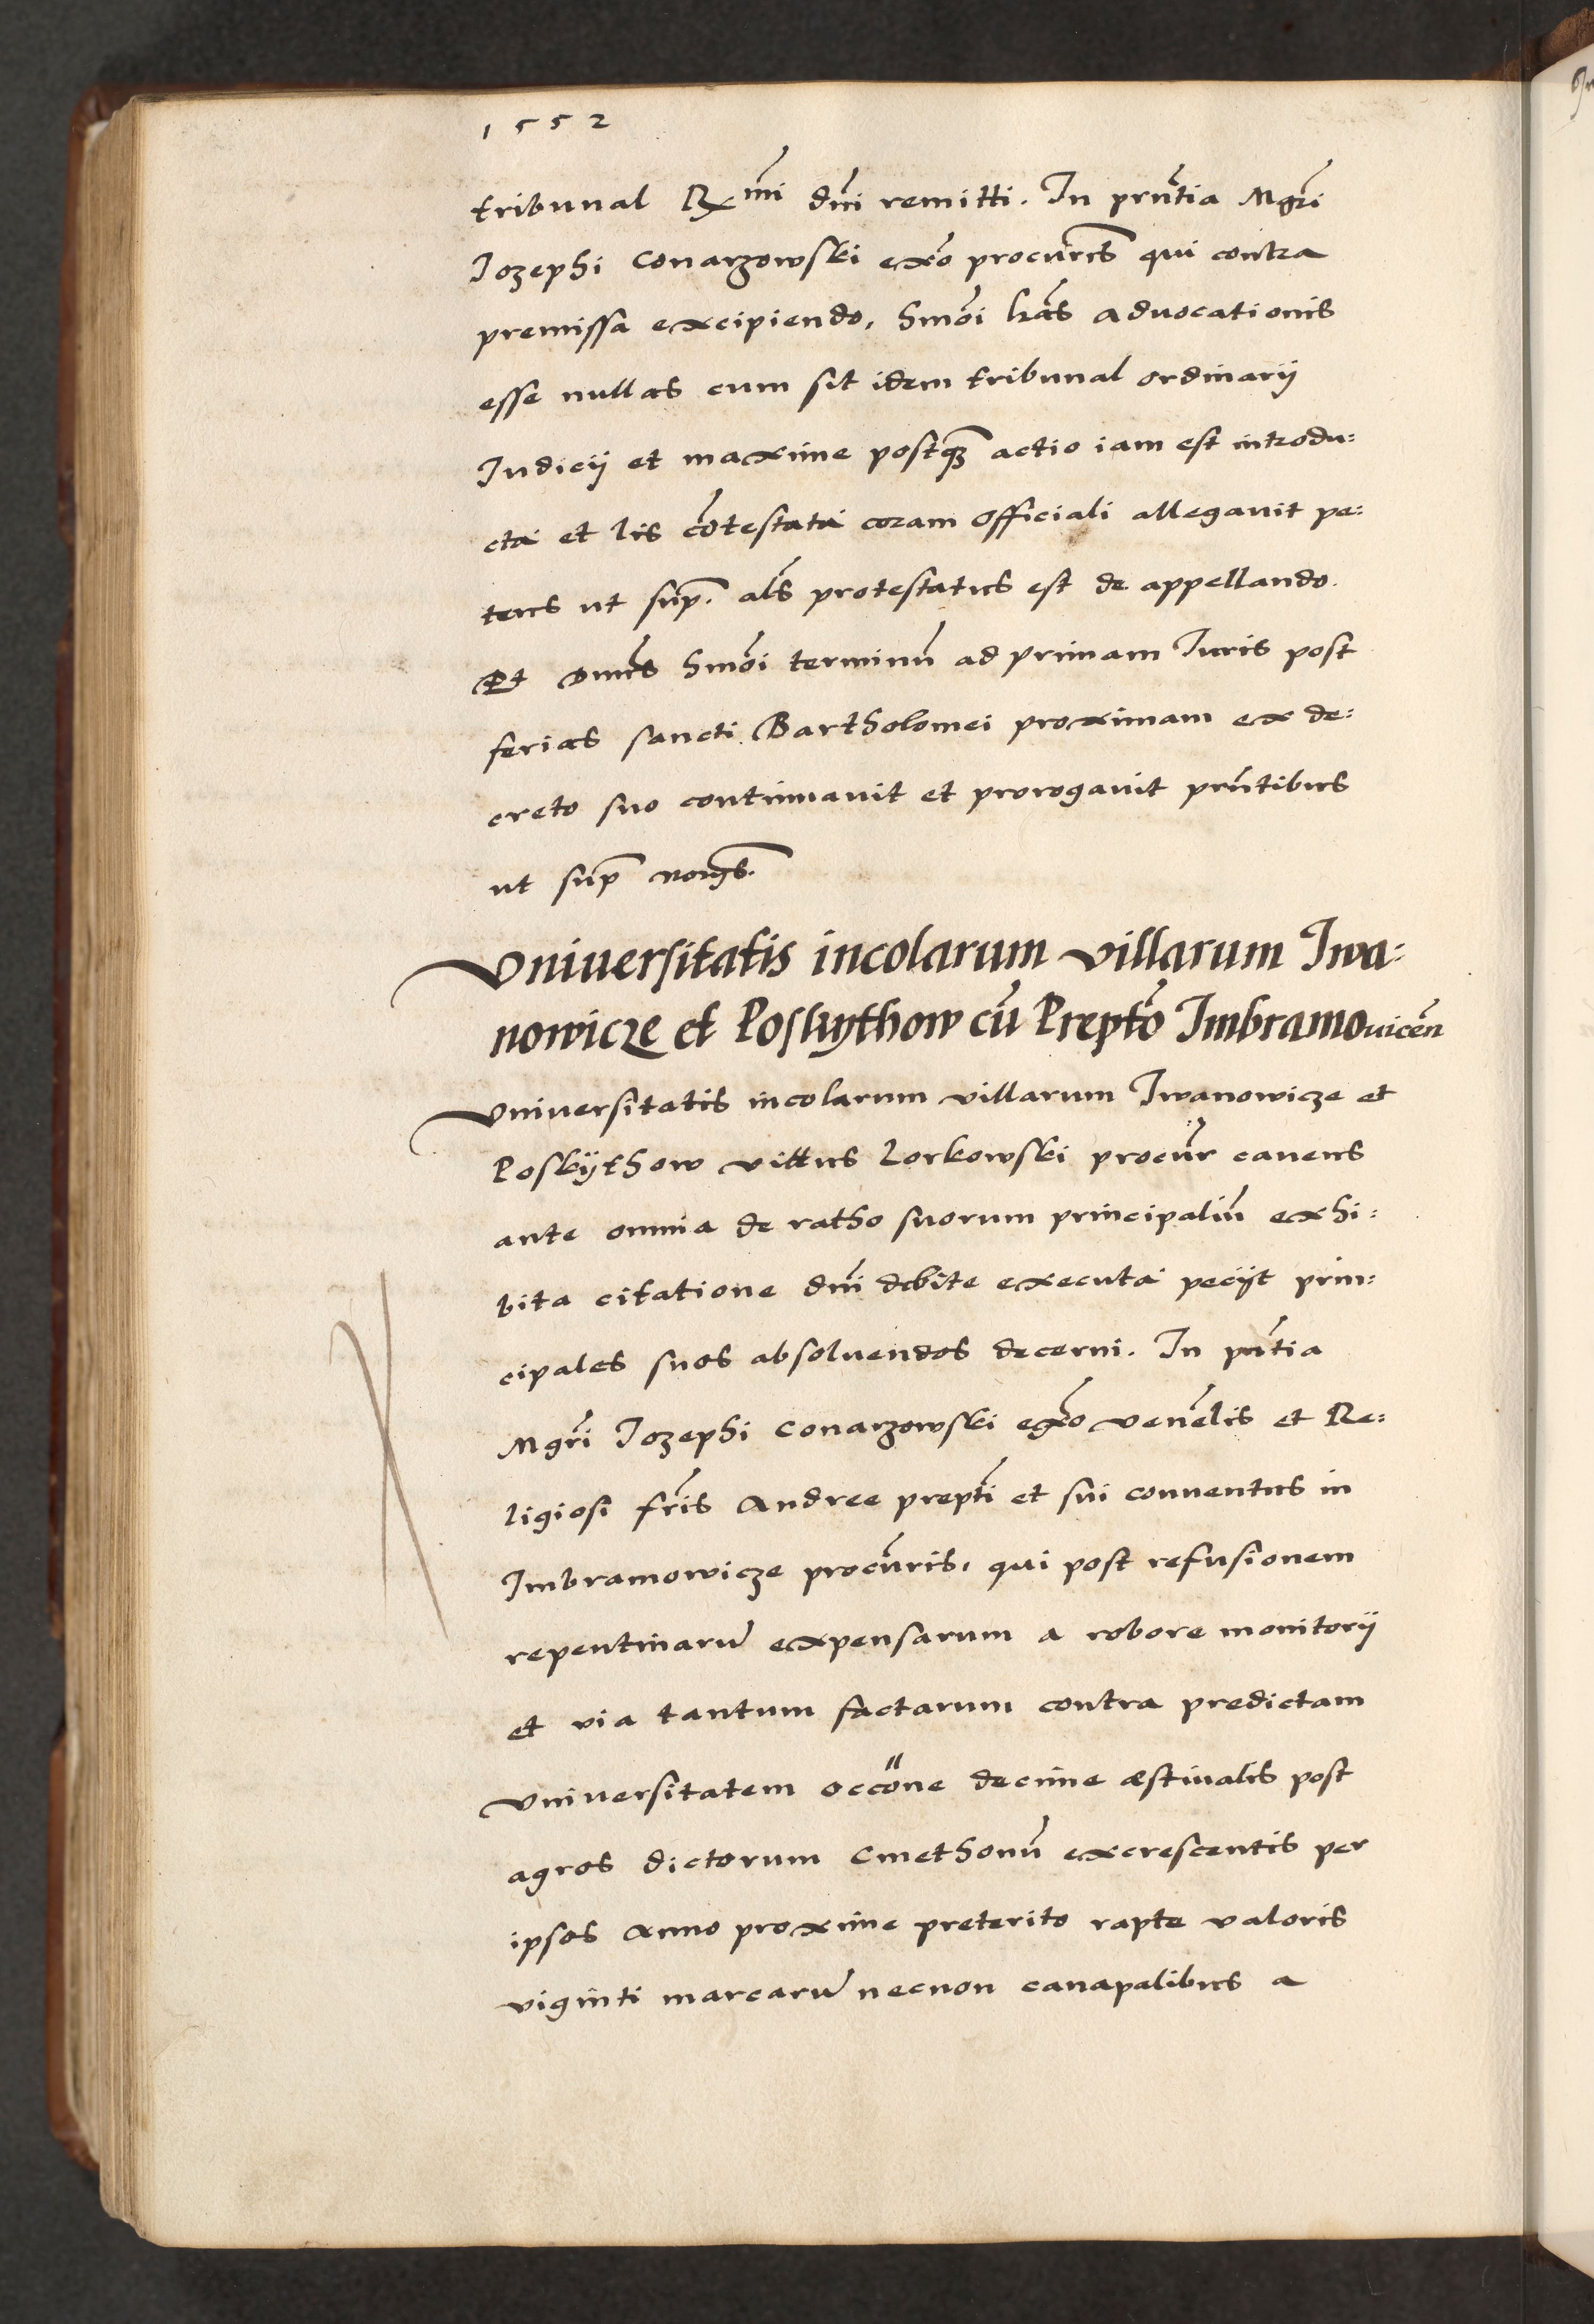 1552
tribunal Rx mi dni remitti. In prntia Mgri
Jozephi Conarzowski exo procuris qui contra
premissa excipiendo, hmoi lras advocationis
esse nullas cum sit idem tribunal ordinarij
Judicij et maxime postqz actio iam est introdu:
cta et lis cotestata coram officiali allegavit pe:
tens ut sup. als protestatus est de appellando.
Et Dnus hmoi terminu ad primam Juris post
ferias sancti Bartholomei proximam ex de:
creto suo continuavit et prorogavit prntibus
ut sup
Universitatis incolarum villarum Iwa:
nowicze et Poskythow cu Prepto Imbramovicen
Universitatis incolarum villarum Iwanowicze et
Poskythow vittus Lorkowski procur cavens
ante omnia de ratho suorum principaliu exhi:
bita citatione dni debite executa petijt prin:
cipales suos absolvendos decerni. In pntia
Mgri Jozephi Conarzowski exo venelis et Re:
ligiosi fris Andree prepti et sui conventus in
Imbramowicze procuris, qui post refusionem
repentinaru expensarum a robore monitorij
et via tantum factarum contra predictam
Universitatem occone decime æstivalis post
agros dictorum Cmethonu excrescentis per
ipsos Anno proxime preterito rapte valoris
viginti marcaru necnon canapalibus a